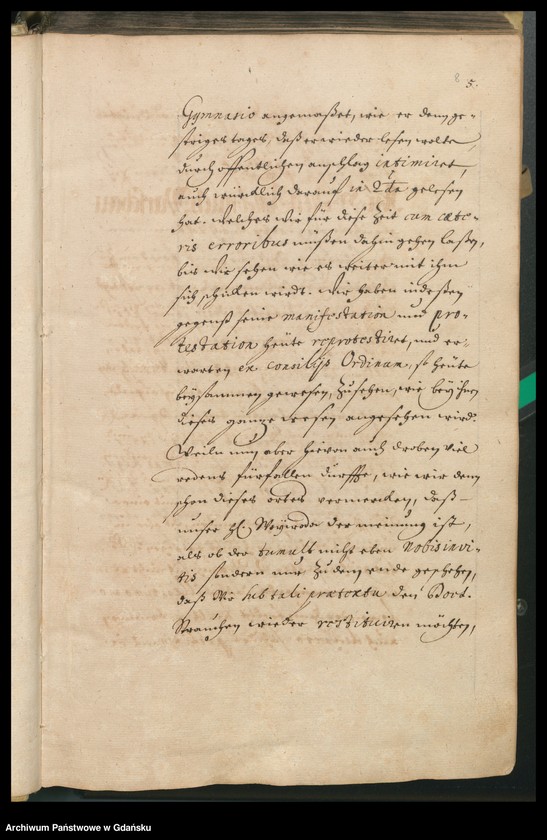 5.
Gymnasio angemaßet, wie er dem ge-
striges tages, daß er wieder lesen wolte
durch öffentlichen anschlag intimiret,
auch würcklich darauf in 2da gelesen
hat. welches wir für diese Zeit cum cæte-
ris erroribus müßen dahin gehen laßen,
biß wir sehen wie es weiter mit ihm
sich schicken wirdt. Wir haben indeßen
gegenst seine manifestation und pro-
testation heute reprotestiret, und er-
warten ex consilijs Ordinum, so heute
beysammen gewesen, zusehen, wie bey ihnen
dieses gantze wesen angesehen wird.
Weiln nun aber hievon auch droben viel
redens fürfallen durffte, wie wir dem
schon dieses ortes vermercken, daß
unser H. Woywoda der meinung ist,
als ob der tumult nicht eben Nobis invi-
tis sondern nur zu dem ende geschehen,
daß Wir sub tali prætextu den Doct.
Strauchen wieder restituiren möchten,
Archiwum Państwowe w Gdańsku